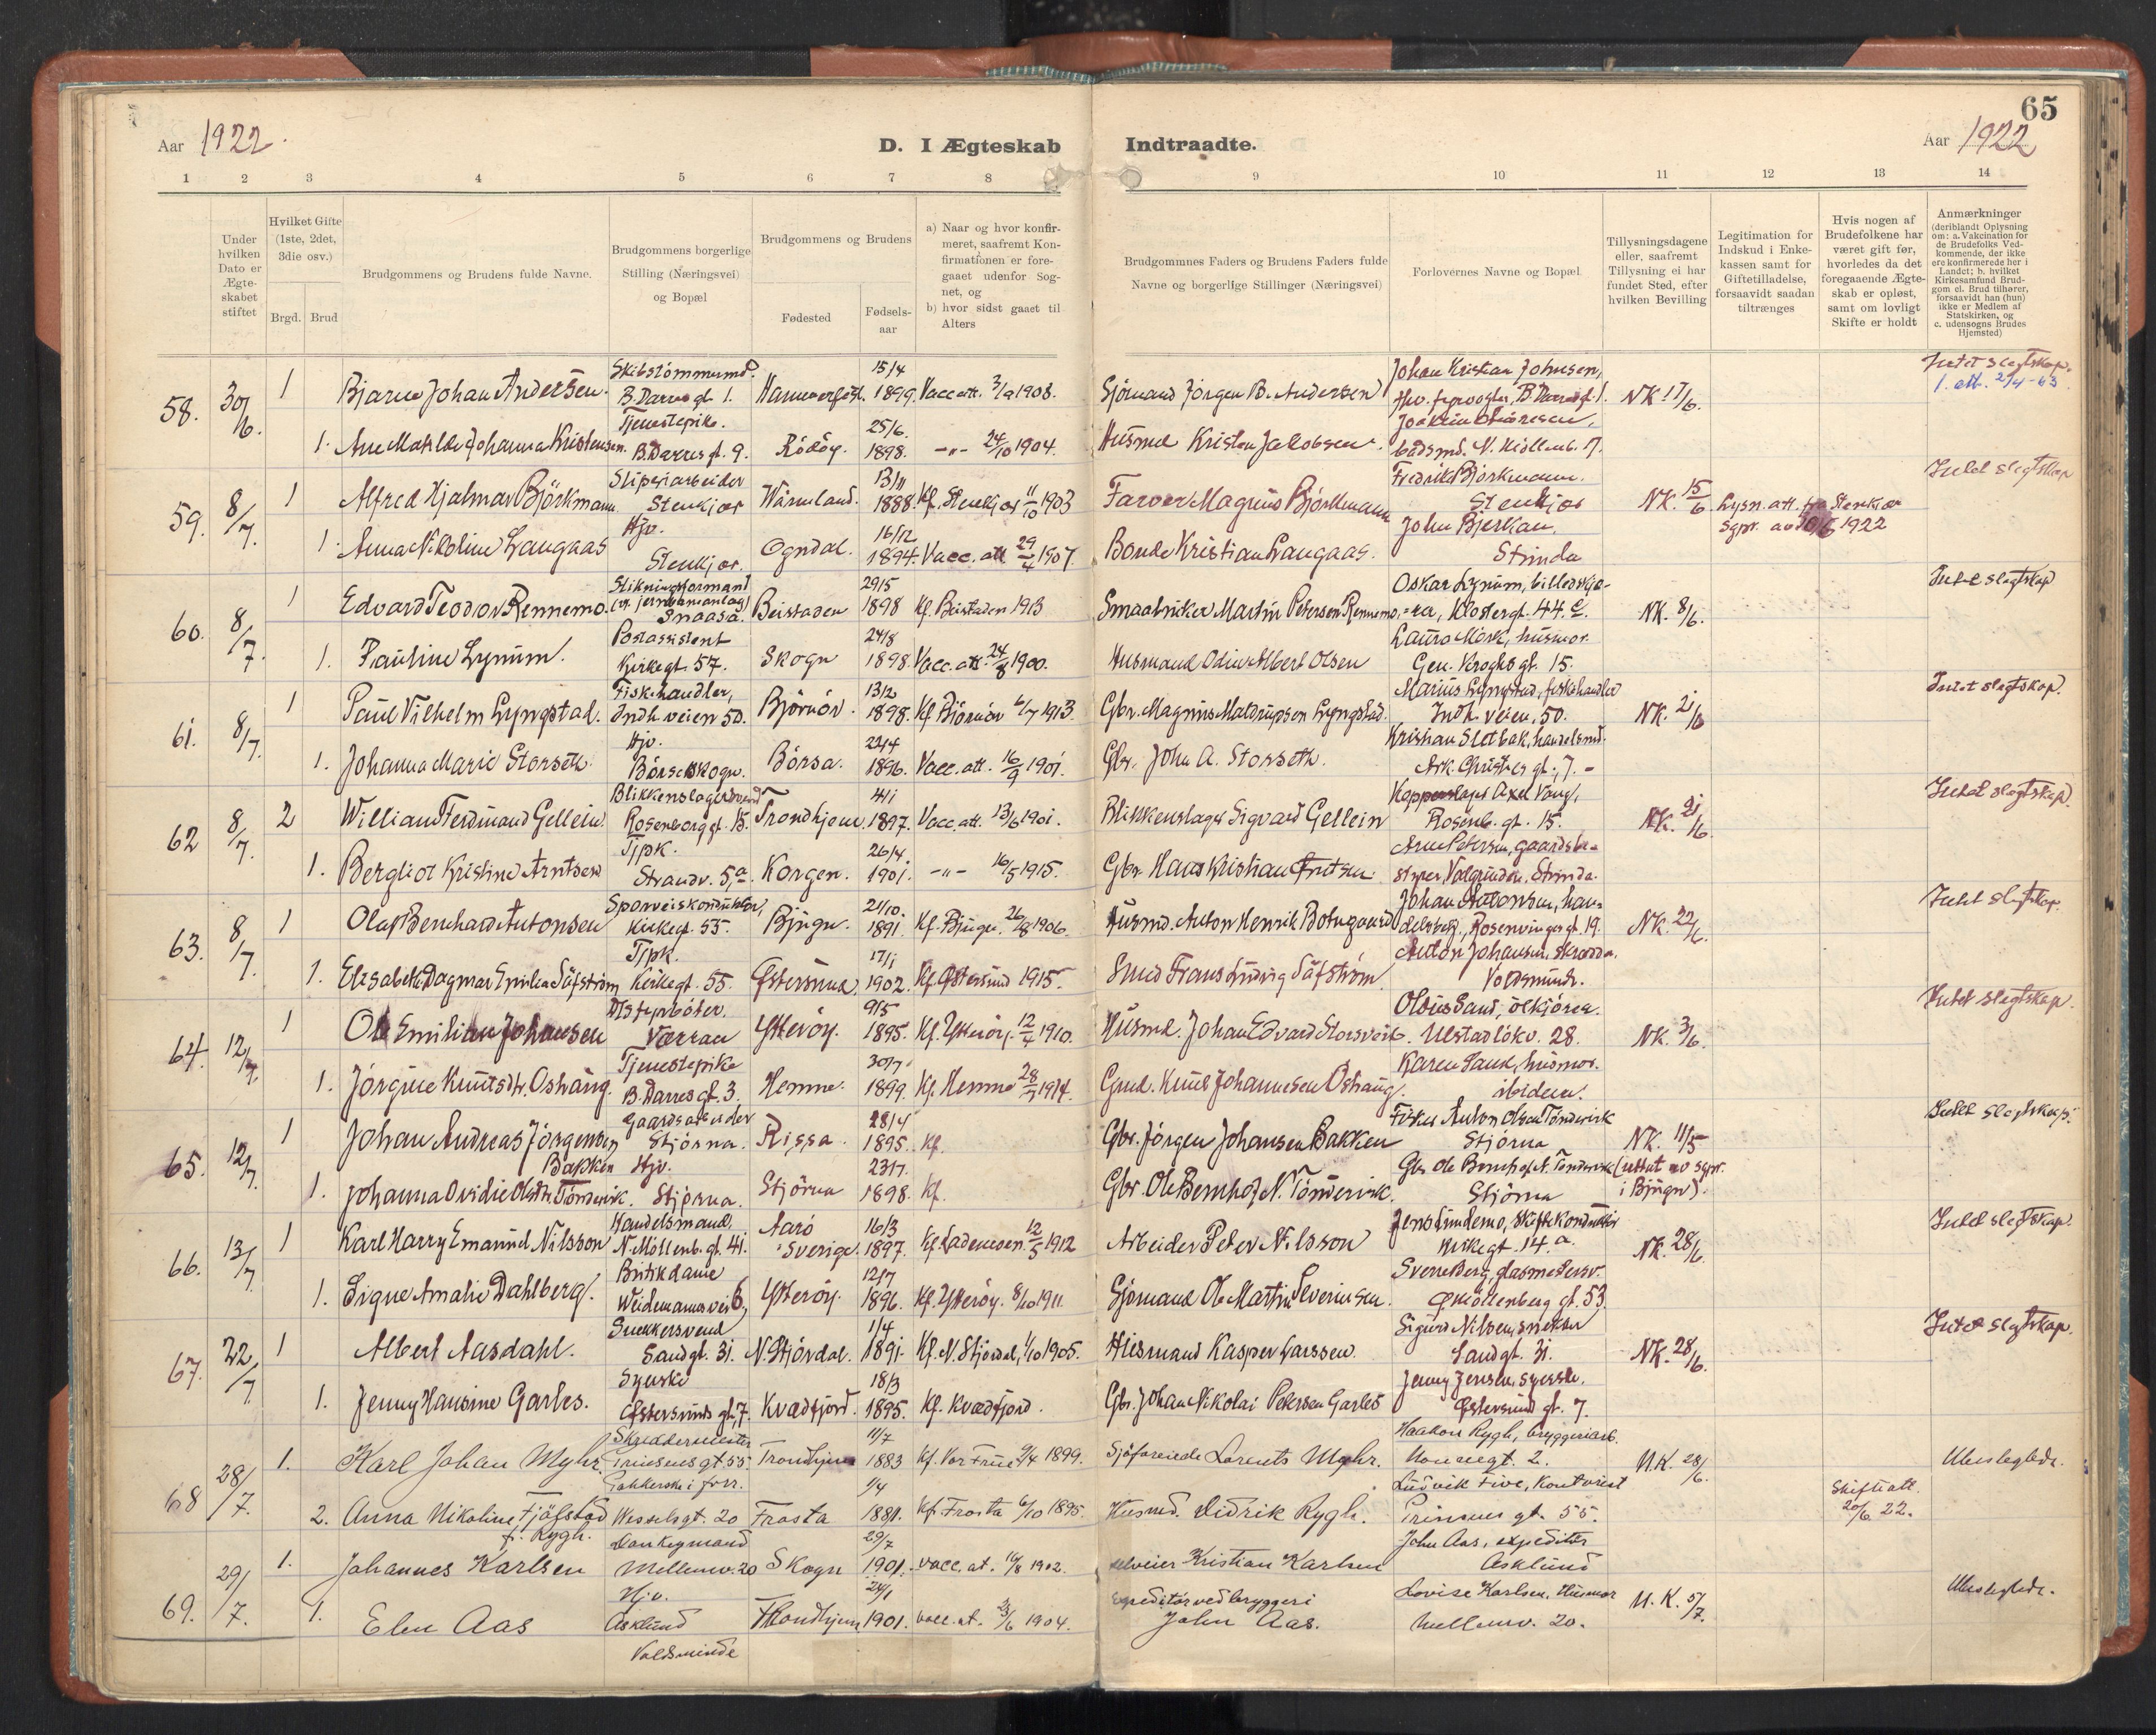 65
Aar 1922.
D. I Ægteskab Indtraadte.
Aar 1922
1 2 3 4 5 6 7 8 9 10 11 12 13 14
Under hvilken Dato er Ægte-skabet stiftet
Hvilket Gifte (1ste, 2det, 3die osv.)
Brgd. Brud
Brudgommens og Brudens fulde Navne.
Brudgommens borgerlige Stilling (Næringsvei) og Bopæl
Brudgommens og Brudens
Fødested
Fødsels-aar
a) Naar og hvor konfir-meret, saafremt Kon-firmationen er fore-gaaet udenfor Sog-net, og
b) hvor sidst gaaet til Alters
Brudgommnes Faders og Brudens Faders fulde Navne og borgerlige Stillinger (Næringsvei)
Forlovernes Navne og Bopæl
Tillysningsdagene eller, saafremt Tillysning ei har fundet Sted, efter hvilken Bevilling
Legitimation for Indskud i Enke-kassen samt for Giftetilladelse, forsaavidt saadan tiltrænges
Hvis nogen af Brudefolkene har været gift før, hvorledes da det foregaaende Ægte-skab er opløst, samt om lovligt Skifte er holdt
Anmærkninger (deriblandt Oplysning om: a. Vakcination for de Brudefolks Ved-kommende, der ikke ere konfirmerede her i Landet; b. hvilket Kirkesamfund Brud-gom el. Brud tilhører, forsaavidt han (hun) ikke er Medlem af Statskirken, og c. udensogns Brudes Hjemsted)
58. 30/6. 1 Bjarne Johan Andersen. B. Darres gt. 1. 15/4 1899. Vacc. att. 3/9 1908. Sjømand Jørgen B. Andersen Johan Kristian Johnsen, NK 17/6. Intet slegtskap.
1. att. 2/4-63
1. Ane Matilde Johanna Kristensen. Tjenestepike. B. Darres gt. 9. Rödöy. 25/6. 1898. -"- 24/10 1904. Husmd Kristen Jakobsen.
59. 8/7. 1 Alfred Hjalmar Björkmann Sliperiarbeider Stenkjær Wärmland. 13/11 1888. Kf. Stenkjær 11/10 1903 Farver Magnus Björkmann Fredrik Björkmann. Stenkjær NK. 15/6 Lysn. att. fra Stenkjær
Sgpr. 1922 Intet slegtskap
1. Anna Nikoline Langaas Hjv. Stenkjær. Ogndal. 16/12 1894. Vacc. att 29/4 1907. Bonde Kristian Langaas. John Bjerkan. Strinda
60. 8/7. 1 Edvard Teodor Rennemo. Stikningsformand (v. jernbaneanlæg) Snaasa. Beistaden 29/5 1898 Kf. Beistaden 1913 Smaabruker Martin Petersen Rennemo Oskar Lynum, billedskjæ-rer, Klostergt. 44. c. NK. 8/6. Intet slegtskap
1. Pauline Lynum. Postassistent Kirkegt. 57. Skogn 24/8 1898. Vacc. att. 24/8 1900. Husmand Odin Albert Olsen Laura Mörk, husmor. Gen. Kroghs gt. 15.
61. 8/7. 1 Paul Vilhelm Lyngstad. Fiskehandler, Indh. veien 50. Björnör. 13/2 1898. Kf Björnör 6/7 1913. Gbr. Magnus Lyngstad. Marius Lyngstad, fiskehandler Indh. veien, 50. NK. 21/6 Intet slegtskap.
1. Johanna Marie Storseth. Hjv. Börseskogn. Börsa. 22/4 1896. Vacc. att. 16/9 1901. Gbr. John A. Storseth. Kristian Sletbak, handelsmd. Ark. Christies gt., 7. -
62 8/7. 2 William Ferdinand Gellein Blikkenslagersvend Rosenborg gt. 15. Trondhjem. 4/1 1897. Vacc. att. 13/6 1901. Blikkenslager Sigvard Gellein Axel Vang, Rosenb. gt. 15. NK. 21/6. Intet slegtskap.
1. Bergliot Kristine Arntsen Tjpk. Strandv. 5, a. Korgen. 26/4. 1901. -"- 16/5 1915. Gbr. Hans Kristian Arne Petersen, gaardsbe-styrer, Valgrinden, Strinda.
63. 8/7. 1 Olaf Bernhard Antonsen Sporveiskonduktör, Kirkegt. 55. Bjugn. 21/10. 1891. Kf. Bjugn. 26/8 1906. Husmd. Anton Henrik Botngaard Johan Rosenvinges gt. 19. NK. 22/6. Intet slegtskap.
1. Elisabeth Dagmar Emilia Säfström Tjpk. Kirkegt. 55. Østersund. 17/1 1902. Kf. Østersund 1915. Smed Frans Ludvig Säfström. Anton Johansen, skrædder. Voldsminde.
64. 12/7. 1 Ole Emilian Johansen Værran Ytterøy. 9/5 1895. Kf. Ytterøy. 12/4 1910. Husmd. Johan Edvard Storsveet. Oldus Sand, ölkjörer. Ulstadlökv. 28. NK. 3/6. Intet slegtskap.
1. Jörgine Knutsdtr. Oshaug. Tjenestepike B. Darres gt. 3. Hemne. 30/7. 1899. Kf. Hemne 28/7 1914. Gmd. Knut Johannesen Oshaug. Karen Sand, husmor. ibidem.
65. 12/7. 1 Johan Andreas Jörgensen Bakken Gaardsarbeider Stjörna. Rissa. 28/4 1895. Kf. Gbr. Jörgen Johansen Bakken Fisker Anton Olsen Töndervik Stjörna NK. 11/5 (uttat av sgpr. i Bjugn). Intet slegtskap.
1. Johanna Ovidie Olsdtr. Töndervik. Hjv. Stjörna. Stjörna 23/7. 1898. Kf. Gbr. Ole Bernhof N. Töndervik. Gbr. Ole Bernhof N. Töndervik Stjörna
66. 13/7 1 Karl Harry Emanuel Nilsson Handelsmand. N. Möllenb. gt. 41. Aarö Sverige. 16/3 1897. Kf. Lademoen. 12/5 1912 Arbeider Peter Nilsson Jens Lundemo, Skiftekonduktör Kirkegt. 14. a. NK. 28/6. Intet slegtskap.
1. Signe Amalie Dahlberg. Butikdame Weidemannsvei 6, Ytteröy. 12/7 1896. Kf. Ytteröy. 8/10 1911. Sjömand Ole Martin Severinsen. Sverre Berg, glasmestersv. Ø. Möllenberg gt. 53.
67. 22/7 1 Albert Aasdahl. Snekkersvend Sandgt. 31. N. Stjördal. 1/4 1891. Kf. N. Stjördal, 1/10 1905. Husmand Kasper Larssen. Sigurd Nilsen, snekker Sandgt. 31. NK. 28/6. Intet slegtskap.
1. Jenny Hansine Garles. Syerske Østersunds gt. 7. Kvædfjord. 18/3 1895. Kf. Kvædfjord. Gbr. Johan Nikolai Petersen Garles Jenny Jensen, syerske. Østersund gt. 7.
68 28/7. 1. Karl Johan Myhr. Skræddermester Prinsensgt 55. Trondhjem 11/7 1883 Kf. Vor Frue 9/4 1899. Sjöfarende Lorents Myhr. Haakon Rygh, bryggeriarb. Nonnegt. 2. N.K. 28/6. Ubeslegtede.
2. Anna Nikoline Fjöfstad f. Rygh. Wesselsgt. 20 Frosta 1/4 1881. Kf. Frosta 6/10 1895. Husmd. Didrik Rygh. Ludvik Five, Kontorist Prinsens gt. 55. Skifteatt. 20/6 22.
69. 29/7. 1. Johannes Karlsen Mellemv. 20 Skogn 29/7 1901. vacc. at. 16/8 1902. Selveier Kristian Karlsen John Aas, expeditör Asklund Ubeslegtede.
1. Elen Aas Hjv. Asklund Voldsminde Trondhjem 24/1 1901. vacc. at. 23/6 1904. Expeditör ved bryggeri John Aas. Lovise Karlsen, Husmor Mellemv. 20. N.K. 5/7.